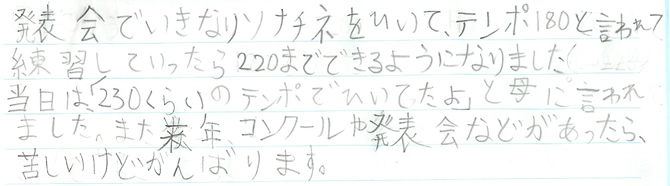 発表会でいきなりソナチネをひいて、テンポ180と言われて
練習していったら220までできるようになりました
当日は、「230くらいのテンポでひいてたよ」と母に言われ
ました。また来年、コンクールや発表会などがあったら、
苦しいけどがんばります。